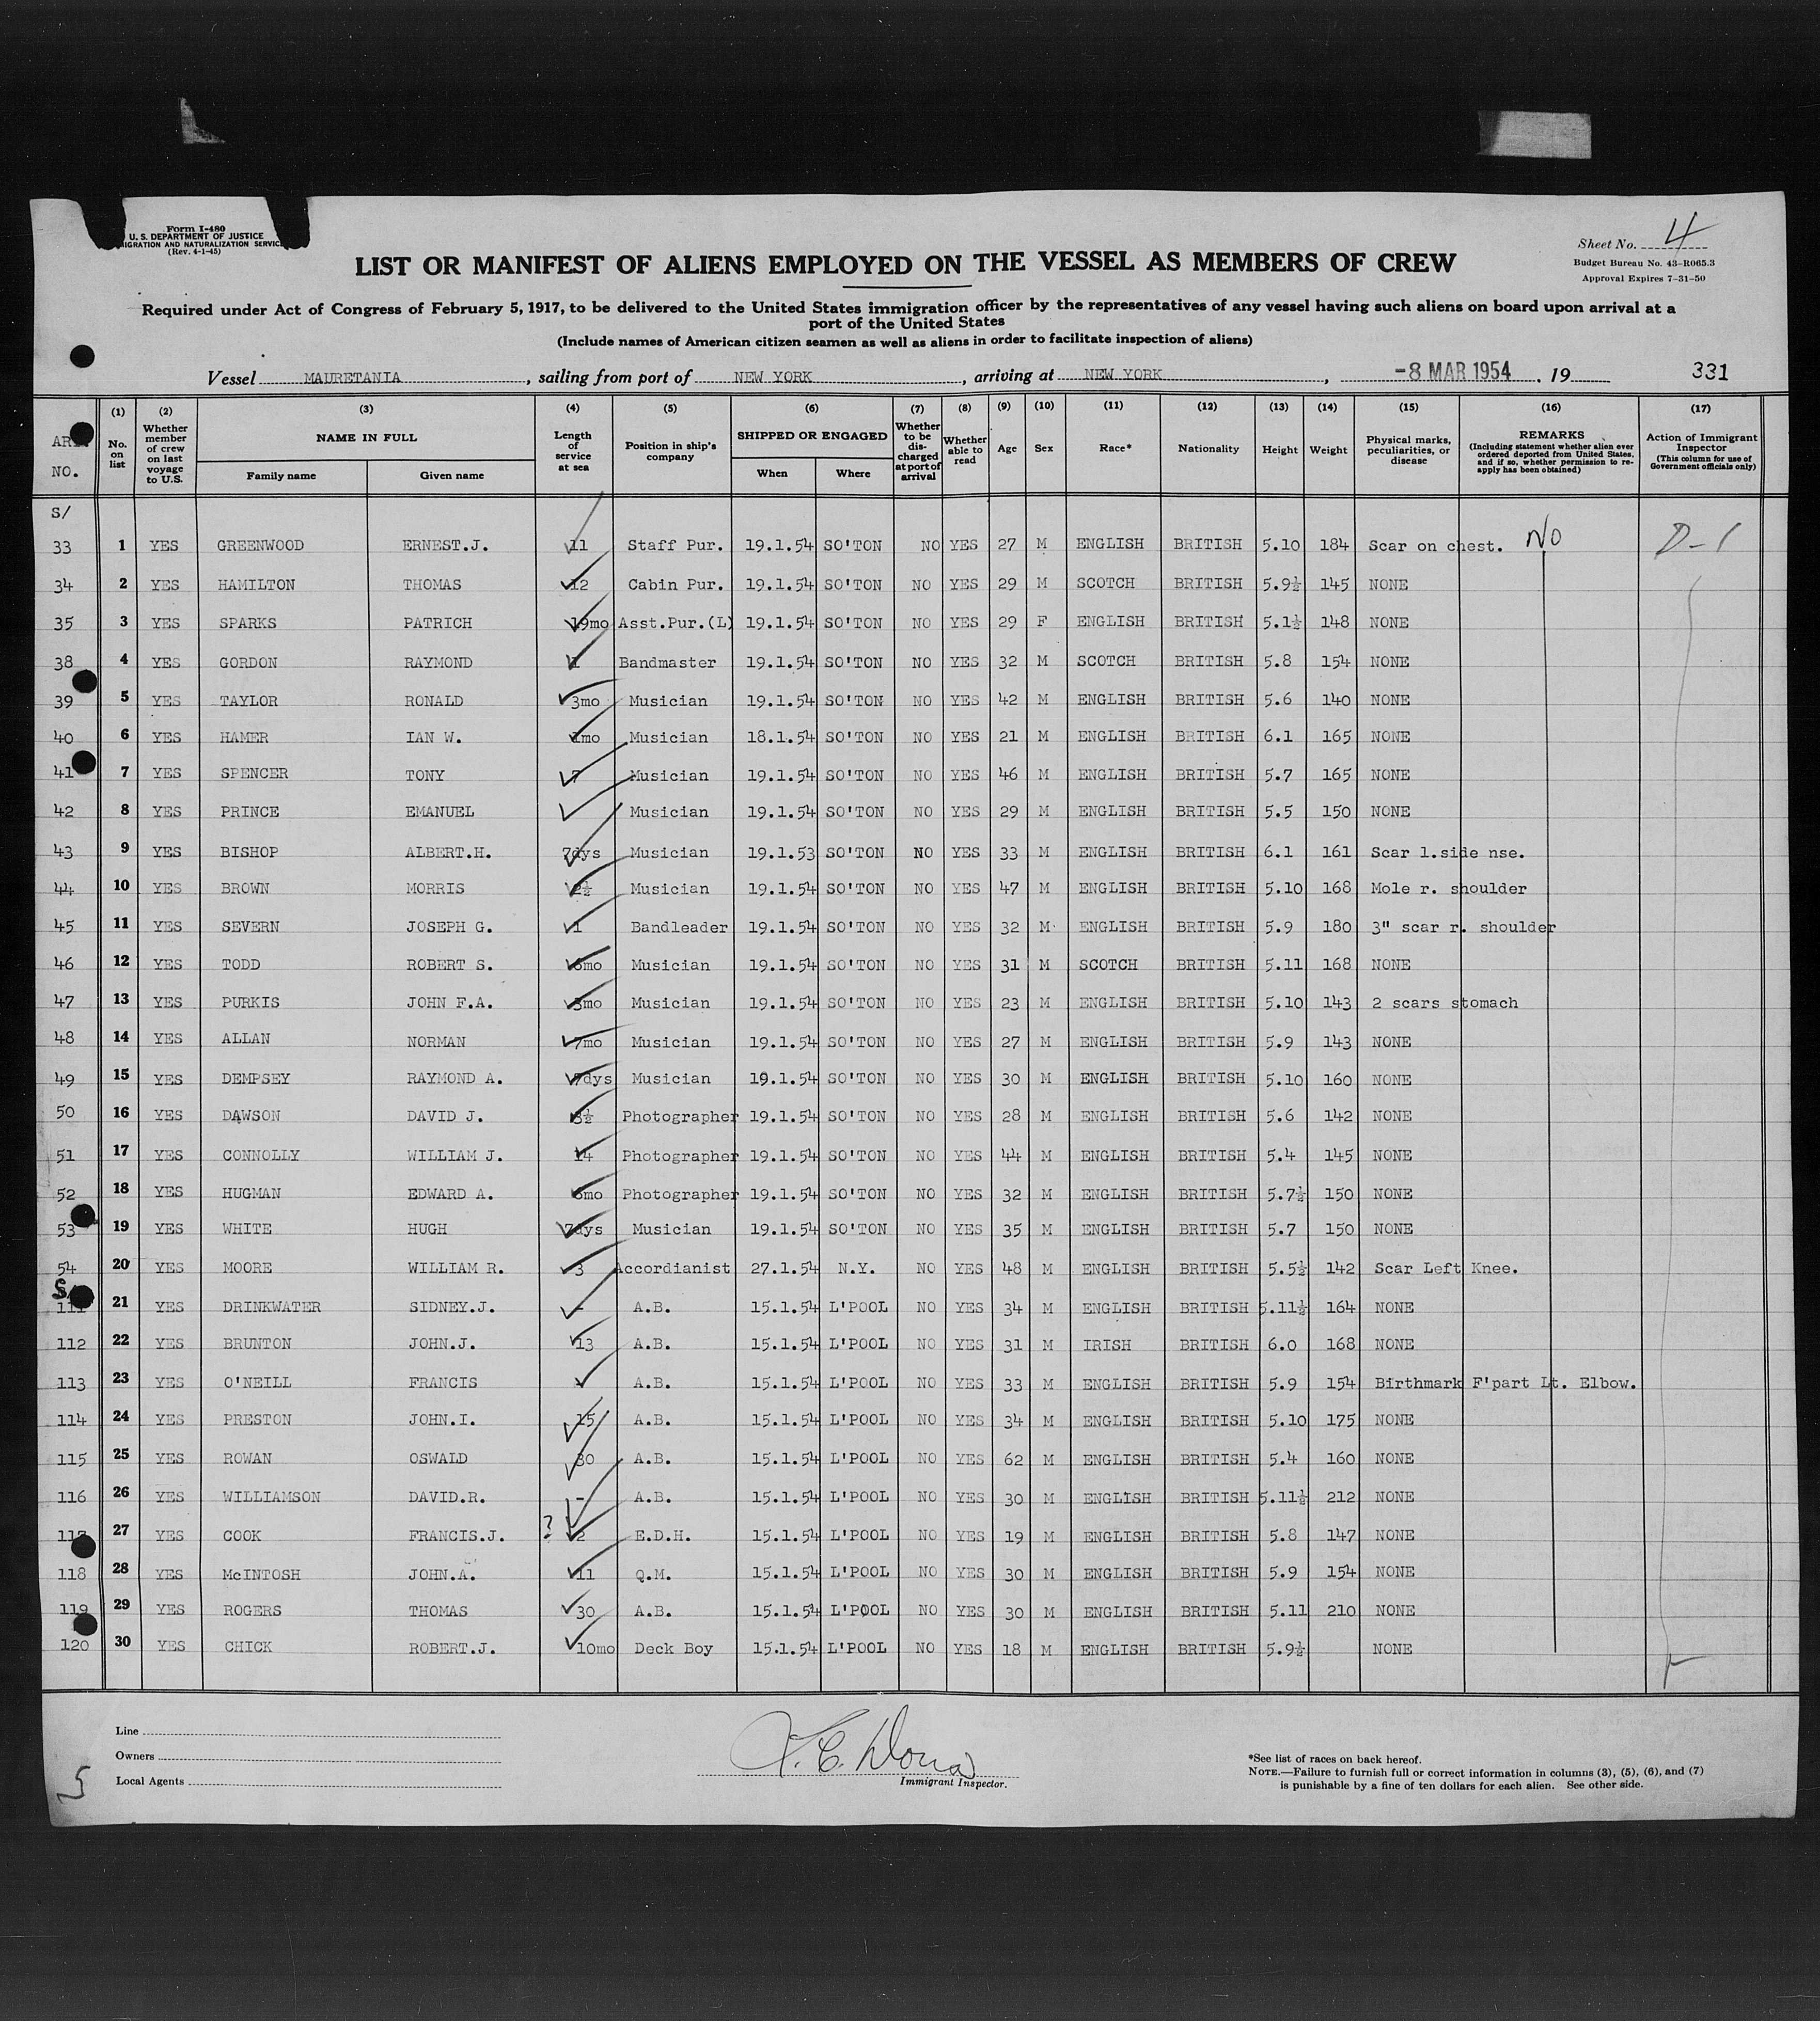 Form I-480
U. S. DEPARTMENT OF JUSTICE
IGRATION AND NATURALIZATION SERVICE
(Rev. 4-1-45)
Sheet No. 4
Budget Bureau No. 43-R065.3
Approval Expires 7-31-50
LIST OR MANIFEST OF ALIENS EMPLOYED ON THE VESSEL AS MEMBERS OF CREW
Required under Act of Congress of February 5, 1917, to be delivered to the United States immigration officer by the representatives of any vessel having such aliens on board upon arrival at a
port of the United States
(Include names of American citizen seamen as well as aliens in order to facilitate inspection of aliens)
Vessel MAURETANIA, sailing from port of NEW YORK, arriving at NEW YORK, -8 MAR 1954, 19 331
NO. (1) No. on list (2) Whether member of crew on last voyage to U.S. (3) NAME IN FULL Family name Given name (4) Length of service at sea (5) Position in ship's company (6) SHIPPED OR ENGAGED When Where (7) Whether to be discharged at port of arrival (8) Whether able to read (9) Age (10) Sex (11) Race* (12) Nationality (13) Height (14) Weight (15) Physical marks, peculiarities, or disease (16) REMARKS (Including statement whether alien ever ordered deported from United States, and if so, whether permission to re-apply has been obtained) (17) Action of Immigrant Inspector (This column for use of Government officials only)
S/
33 1 YES GREENWOOD ERNEST.J. 11 Staff Pur. 19.1.54 SO'TON NO YES 27 M ENGLISH BRITISH 5.10 184 Scar on chest. NO D-1
34 2 YES HAMILTON THOMAS 12 Cabin Pur. 19.1.54 SO'TON NO YES 29 M SCOTCH BRITISH 5.9½ 145 NONE
35 3 YES SPARKS PATRICH 19mo Asst.Pur.(L) 19.1.54 SO'TON NO YES 29 F ENGLISH BRITISH 5.1½ 148 NONE
38 4 YES GORDON RAYMOND 1 Bandmaster 19.1.54 SO'TON NO YES 32 M SCOTCH BRITISH 5.8 154 NONE
39 5 YES TAYLOR RONALD 3mo Musician 19.1.54 SO'TON NO YES 42 M ENGLISH BRITISH 5.6 140 NONE
40 6 YES HAMER IAN W. 1mo Musician 18.1.54 SO'TON NO YES 21 M ENGLISH BRITISH 6.1 165 NONE
41 7 YES SPENCER TONY 7 Musician 19.1.54 SO'TON NO YES 46 M ENGLISH BRITISH 5.7 165 NONE
42 8 YES PRINCE EMANUEL Musician 19.1.54 SO'TON NO YES 29 M ENGLISH BRITISH 5.5 150 NONE
43 9 YES BISHOP ALBERT.H. 7dys Musician 19.1.53 SO'TON NO YES 33 M ENGLISH BRITISH 6.1 161 Scar l.side nse.
44 10 YES BROWN MORRIS 2½ Musician 19.1.54 SO'TON NO YES 47 M ENGLISH BRITISH 5.10 168 Mole r. shoulder
45 11 YES SEVERN JOSEPH G. 1 Bandleader 19.1.54 SO'TON NO YES 32 M ENGLISH BRITISH 5.9 180 3" scar r. shoulder
46 12 YES TODD ROBERT S. 6mo Musician 19.1.54 SO'TON NO YES 31 M SCOTCH BRITISH 5.11 168 NONE
47 13 YES PURKIS JOHN F.A. 3mo Musician 19.1.54 SO'TON NO YES 23 M ENGLISH BRITISH 5.10 143 2 scars stomach
48 14 YES ALLAN NORMAN 7mo Musician 19.1.54 SO'TON NO YES 27 M ENGLISH BRITISH 5.9 143 NONE
49 15 YES DEMPSEY RAYMOND A. 7dys Musician 19.1.54 SO'TON NO YES 30 M ENGLISH BRITISH 5.10 160 NONE
50 16 YES DAWSON DAVID J. 3½ Photographer 19.1.54 SO'TON NO YES 28 M ENGLISH BRITISH 5.6 142 NONE
51 17 YES CONNOLLY WILLIAM J. 14 Photographer 19.1.54 SO'TON NO YES 44 M ENGLISH BRITISH 5.4 145 NONE
52 18 YES HUGMAN EDWARD A. 6mo Photographer 19.1.54 SO'TON NO YES 32 M ENGLISH BRITISH 5.7½ 150 NONE
53 19 YES WHITE HUGH 7dys Musician 19.1.54 SO'TON NO YES 35 M ENGLISH BRITISH 5.7 150 NONE
54 20 YES MOORE WILLIAM R. 3 Accordianist 27.1.54 N.Y. NO YES 48 M ENGLISH BRITISH 5.5½ 142 Scar Left Knee.
S/
111 21 YES DRINKWATER SIDNEY.J. - A.B. 15.1.54 L'POOL NO YES 34 M ENGLISH BRITISH 5.11½ 164 NONE
112 22 YES BRUNTON JOHN.J. 13 A.B. 15.1.54 L'POOL NO YES 31 M IRISH BRITISH 6.0 168 NONE
113 23 YES O'NEILL FRANCIS - A.B. 15.1.54 L'POOL NO YES 33 M ENGLISH BRITISH 5.9 154 Birthmark F'part Lt. Elbow.
114 24 YES PRESTON JOHN.I. 15 A.B. 15.1.54 L'POOL NO YES 34 M ENGLISH BRITISH 5.10 175 NONE
115 25 YES ROWAN OSWALD 30 A.B. 15.1.54 L'POOL NO YES 62 M ENGLISH BRITISH 5.4 160 NONE
116 26 YES WILLIAMSON DAVID.R. - A.B. 15.1.54 L'POOL NO YES 30 M ENGLISH BRITISH 5.11½ 212 NONE
117 27 YES COOK FRANCIS.J. ? 2 E.D.H. 15.1.54 L'POOL NO YES 19 M ENGLISH BRITISH 5.8 147 NONE
118 28 YES McINTOSH JOHN.A. 11 Q.M. 15.1.54 L'POOL NO YES 30 M ENGLISH BRITISH 5.9 154 NONE
119 29 YES ROGERS THOMAS 30 A.B. 15.1.54 L'POOL NO YES 30 M ENGLISH BRITISH 5.11 210 NONE
120 30 YES CHICK ROBERT.J. 10mo Deck Boy 15.1.54 L'POOL NO YES 18 M ENGLISH BRITISH 5.9½ NONE
Line
Owners
Local Agents
5
Immigrant Inspector.
*See list of races on back hereof.
NOTE.—Failure to furnish full or correct information in columns (3), (5), (6), and (7)
is punishable by a fine of ten dollars for each alien. See other side.